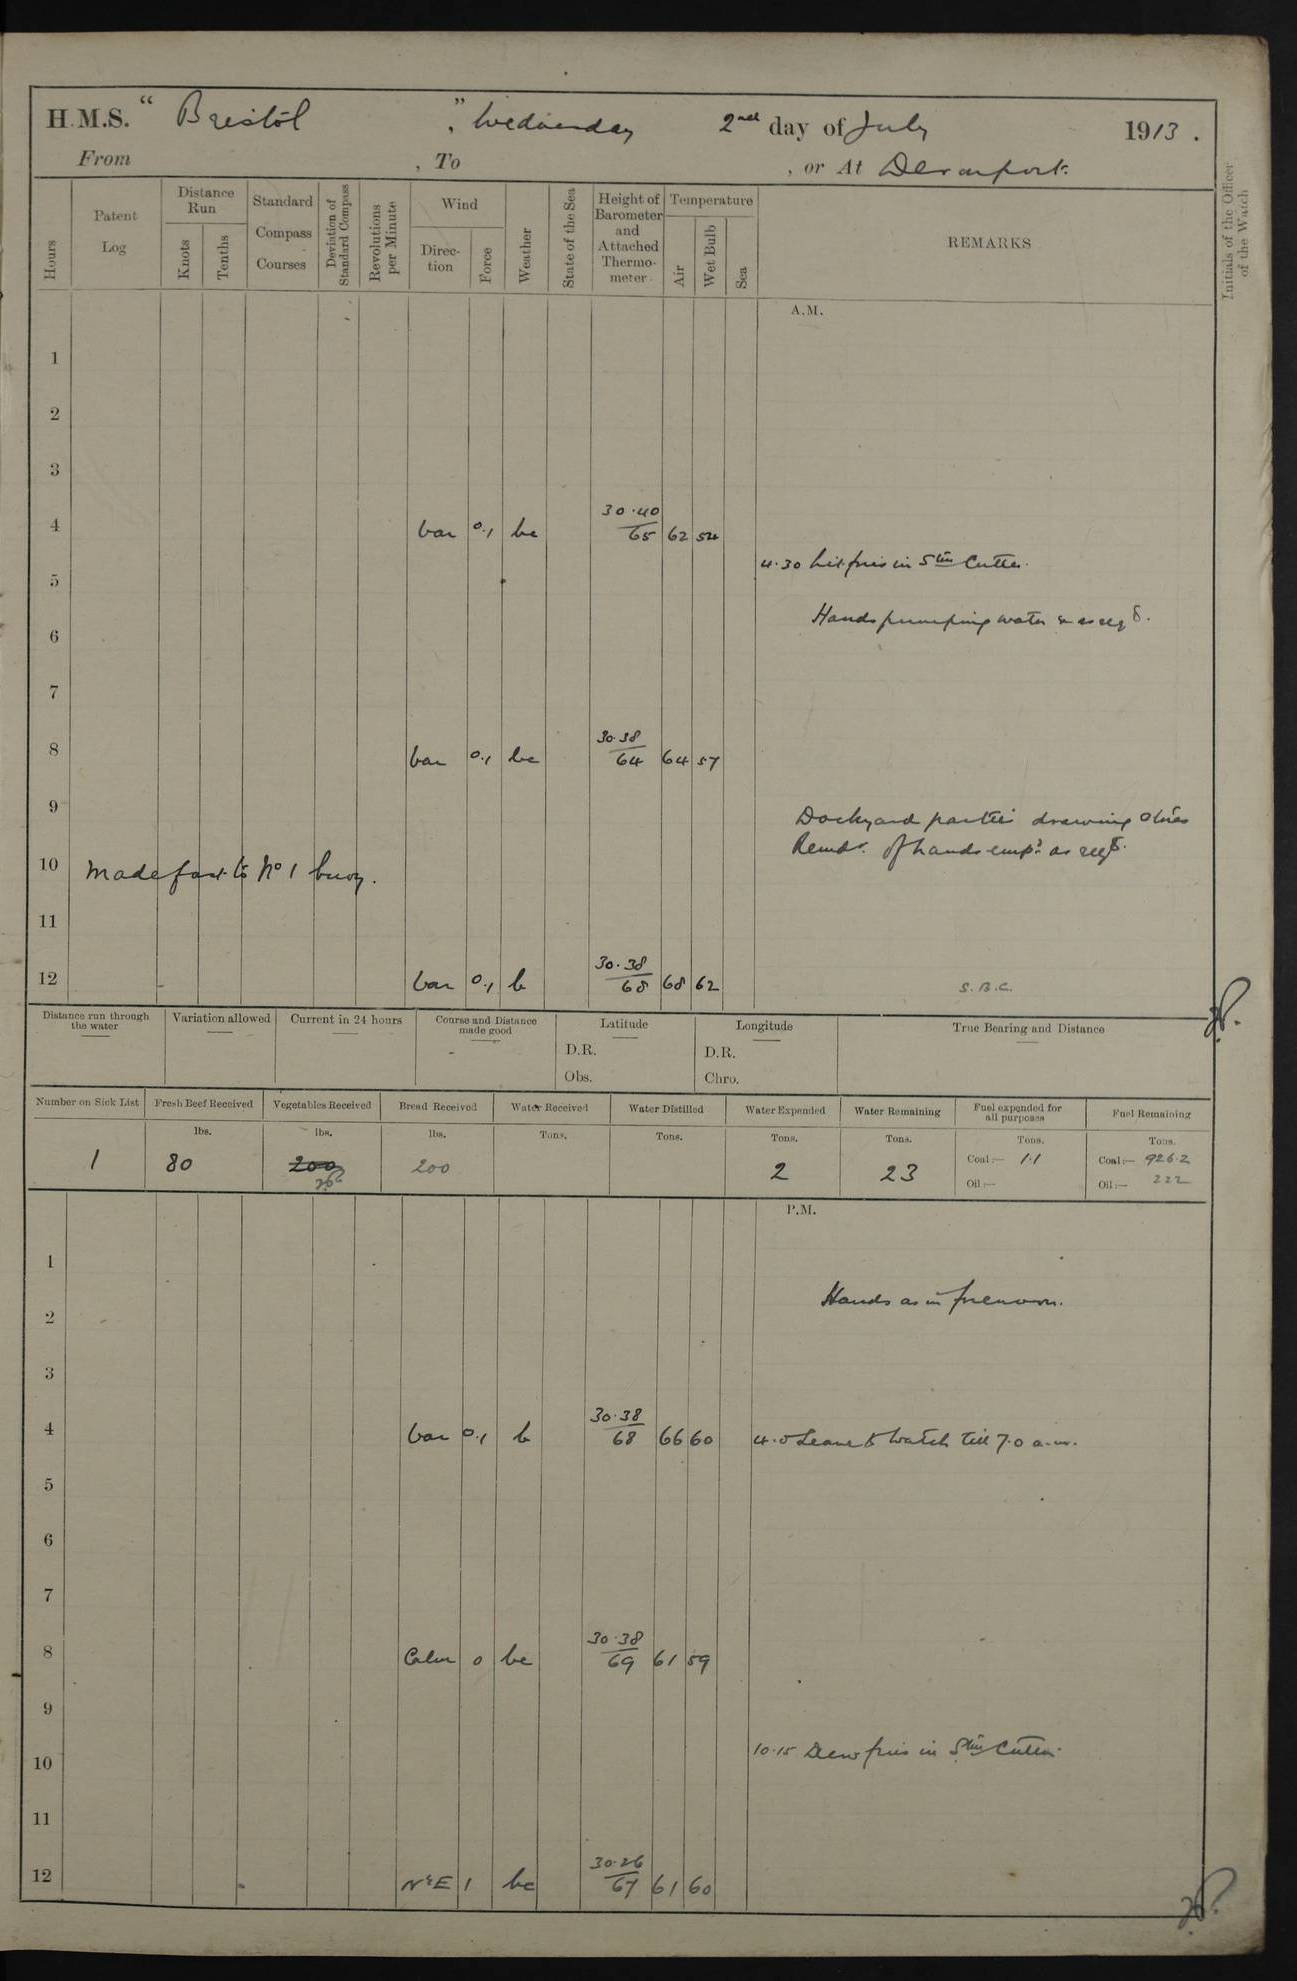 H.M.S. “ Bristol ”, Wednesday 2nd day of July 1913.
From , To , or At Devonport.
Hours
Patent Log
Distance Run
Knots
Tenths
Standard Compass Courses
Deviation of Standard Compass
Revolutions per Minute
Wind
Direction
Force
Weather
State of the Sea
Height of Barometer and Attached Thermometer
Temperature
Air
Wet Bulb
Sea
REMARKS
Initials of the Officer of the Watch
A.M.
1
2
3
4 var 0.1 bc 30.40/65 62 54
4.30 Lit fires in Stm Cutter.
5
Hands pumping water & as reqd.
6
7
8 var 0.1 bc 30.38/64 64 57
9
Dockyard parties drawing stores
Remdr. of hands empd. as reqd.
10 Made fast to No 1 buoy.
11
12 var 0.1 b 30.38/68 68 62 S.B.C.
Distance run through the water
Variation allowed
Current in 24 hours
Course and Distance made good
Latitude
D.R.
Obs.
Longitude
D.R.
Chro.
True Bearing and Distance
Number on Sick List
Fresh Beef Received
Vegetables Received
Bread Received
Water Received
Water Distilled
Water Expended
Water Remaining
Fuel expended for all purposes
Fuel Remaining
lbs. lbs. lbs. Tons. Tons. Tons. Tons. Tons. Tons.
1 80 200 200 2 23 Coal:— 1.1 Coal:— 926.2
Oil:— Oil:— 222
P.M.
1
Hands as in forenoon.
2
3
4 var 0.1 b 30.38/68 66 60 4.0 Leave to Watch till 7.0 a.m.
5
6
7
8 Calm 0 bc 30.38/69 61 59
9
10.15 Drew fires in Stm Cutter.
10
11
12 N'E 1 bc 30.26/67 61 60